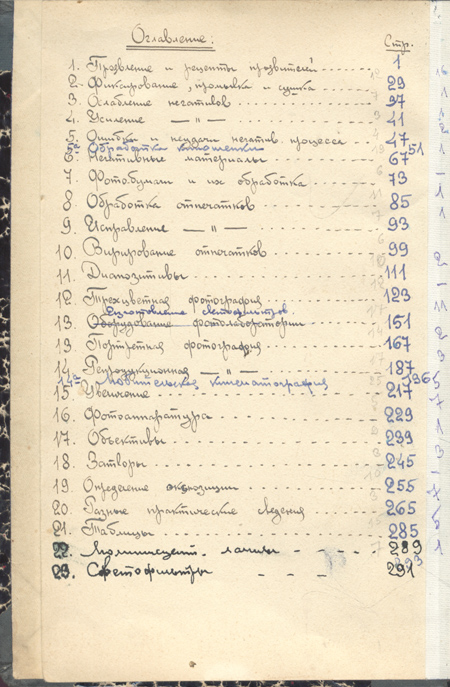 Оглавление:
Стр.
1. Проявление и рецепты проявителей 1
2. Фиксирование, промывка и сушка 29
3. Ослабление негативов 37
4. Усиление — " — 41
5. Ошибки и неудачи негатив. процесса 47
5а Обработка кинопленки 51
6. Негативные материалы 67
7. Фотобумаги и их обработка 73
8. Обработка отпечатков 85
9. Исправление — " — 93
10. Вирирование отпечатков 99
11. Диапозитивы 111
12. Трехцветная фотография 123
Изготовление светофильтров
13. Оборудование фотолаборатории 151
13. Портретная фотография 167
14. Репродукционная — " — 187
14а Любительская кинематография 196
15. Увеличение 217
16. Фотоаппаратура 229
17. Объективы 239
18. Затворы 245
19. Определение экспозиции 255
20. Разные практические сведения 265
21. Таблицы 285
22. Люминисцент. лампы 289
23. Светофильтры 291